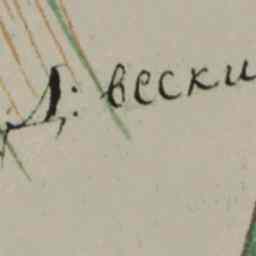 Д: вески